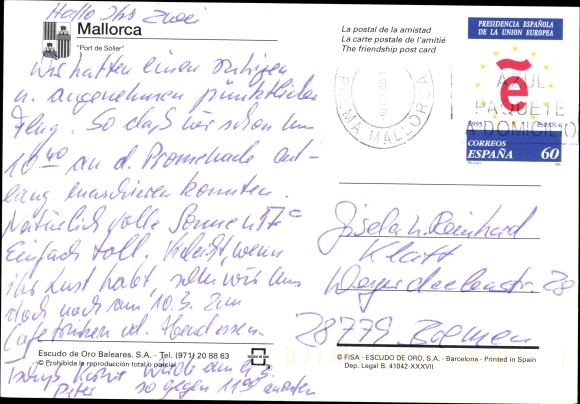 Hallo Ihr zwei
Mallorca
"Port de Sóller"
Wir hatten einen ruhigen
u. angenehmen pünktlichen
Flug. So daß wir schon um
10 40 an d. Promenade ent-
lang marschieren konnten.
Natürlich volle Sonne 17°
Einfach toll. Vielleicht, wenn
ihr Lust habt, sollten wir uns
doch noch am 10.3. zum
Cafetrinken od. Abendessen.
Tschüß
Peter
würde am 9.3.
so gegen 11 00 anrufen
Escudo de Oro Baleares. S.A. - Tel. (971) 20 88 63
© Prohibida la reproducción total o parcial
ESCUDO DE ORO
La postal de la amistad
La carte postale de l'amitié
The friendship post card
PALMA MALLORCA
AZUL
PAQUETE
A DOMICILIO
PRESIDENCIA ESPAÑOLA
DE LA UNION EUROPEA
ẽ
1995 ESPAÑA
CORREOS
ESPAÑA 60
Gisela u. Reinhard
Klatt
28779 Bremen
© FISA - ESCUDO DE ORO, S.A. - Barcelona - Printed in Spain
Dep. Legal B. 41042-XXXVII